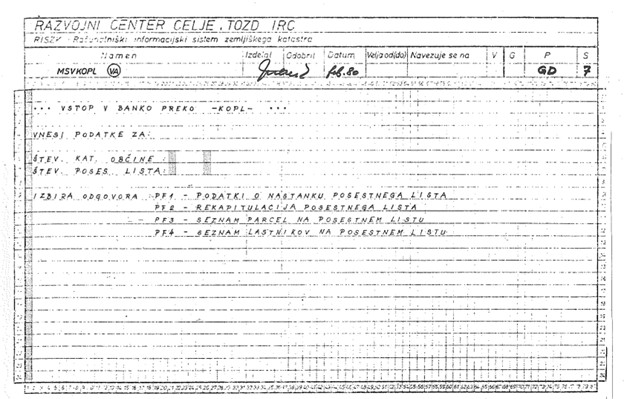 RAZVOJNI CENTER CELJE, TOZD IRC
RISZK - Računalniški informacijski sistem zemljiškega katastra
Namen Izdelal Odobril Datum Velja od(do) Navezuje se na V G P S
MSVKOPL VA feb. 80 GD 7
••• VSTOP V BANKO PREKO -KOPL- •••
VNESI PODATKE ZA:
ŠTEV. KAT. OBČINE:
ŠTEV. POSES. LISTA:
IZBIRA ODGOVORA PF1 - PODATKI O NASTANKU POSESTNEGA LISTA
PF2 - REKAPITULACIJA POSESTNEGA LISTA
- PF3 - SEZNAM PARCEL NA POSESTNEM LISTU
PF4 - SEZNAM LASTNIKOV NA POSESTNEM LISTU